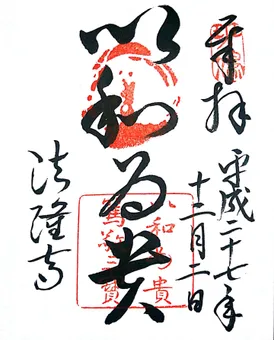 奉拝
平成二十七年
十二月二日
以和為貴
法隆寺
以和為貴
篤敬三寶